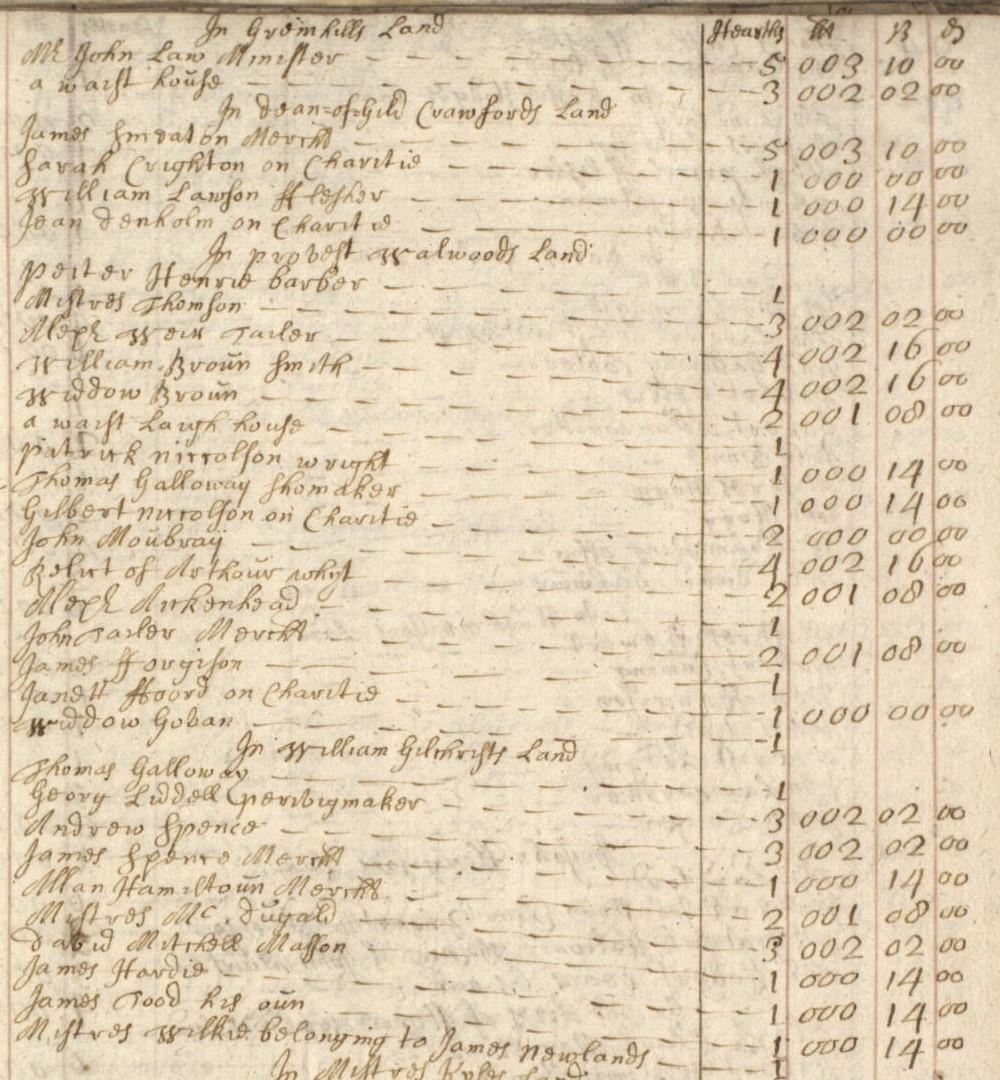 In Gremhills Land Hearths lib ß d
Mr John Law Minister 5 003 10 00
a waist house 3 002 02 00
In dean=of=gild Crawfords Land
James Smeaton Mercht 5 003 10 00
Sarah Crighton on Charitie 1 000 00 00
William Lawson fflesher 1 000 14 00
Jean denholm on Charitie 1 000 00 00
In provest Walwoods Land
peiter Henrie barber 1
Mistres Thomson 3 002 02 00
Alexr Weir Tailer 4 002 16 00
William Broun smith 4 002 16 00
Widdow Broun 2 001 08 00
a waist Laigh house 1
patrick niccolson wright 1 000 14 00
Thomas Galloway shomaker 1 000 14 00
Gilbert niccolson on Charitie 2 000 00 00
John Moubray 4 002 16 00
Relict of Arthour whyt 2 001 08 00
Alexr Aickenhead 1
John Tailer Mercht 2 001 08 00
James fforgison 1
Janett ffoord on Charitie 1 000 00 00
Widdow Govan 1
In William Gilchrists Land
Thomas Galloway 1
Georg Liddell perivigmaker 3 002 02 00
Andrew Spence 3 002 02 00
James Spence Mercht 1 000 14 00
Allan Hamiltoun Mercht 2 001 08 00
Mistres Mc.dugald 3 002 02 00
david Mitchell Masson 1 000 14 00
James Hardie 1 000 14 00
James Tood his oun 1 000 14 00
Mistres Wilkie belonging to James Newlands 1
In Mistres Kyles Land